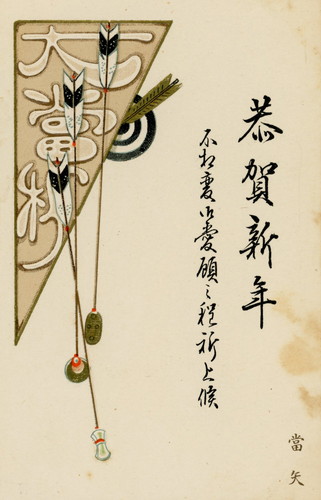 恭賀新年
不相変御愛顧之程祈上候
當矢
大當り